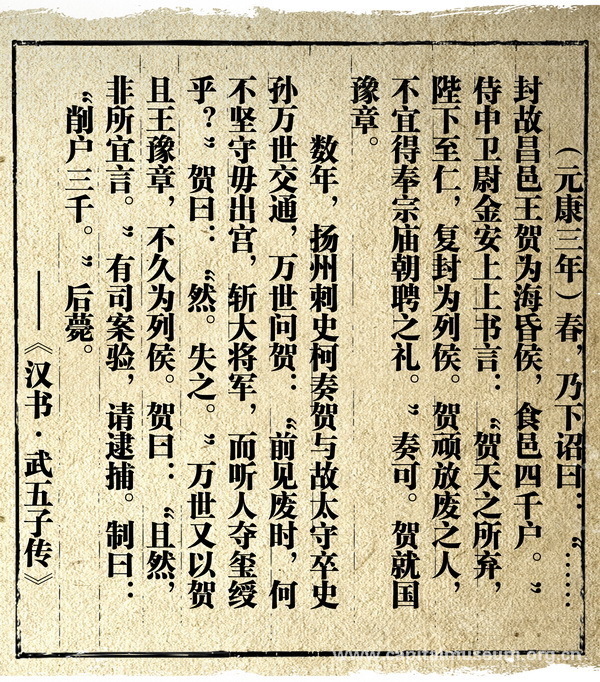 （元康三年）春，乃下诏曰：“……
封故昌邑王贺为海昏侯，食邑四千户。”
侍中卫尉金安上上书言：“贺天之所弃，
陛下至仁，复封为列侯。贺顽放废之人，
不宜得奉宗庙朝聘之礼。”奏可。贺就国
豫章。
数年，扬州刺史柯奏贺与故太守卒史
孙万世交通，万世问贺：“前见废时，何
不坚守毋出宫，斩大将军，而听人夺玺绶
乎？”贺曰：“然。失之。”万世又以贺
且王豫章，不久为列侯。贺曰：“且然，
非所宜言。”有司案验，请逮捕。制曰：
“削户三千。”后薨。
——《汉书·武五子传》
www.capitalmuseum.org.cn